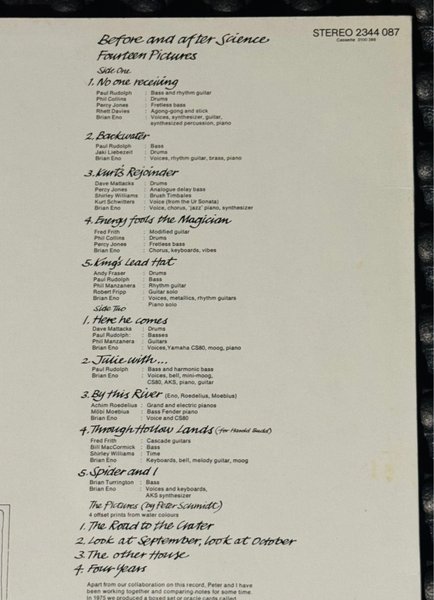 Before and after Science
STEREO 2344 087
Cassette 3100 399
Fourteen Pictures
Side One
1. No one receiving
Paul Rudolph : Bass and rhythm guitar
Phil Collins : Drums
Percy Jones : Fretless bass
Rhett Davies : Agong-gong and stick
Brian Eno : Voices, synthesizer, guitar,
synthesized percussion, piano
2. Backwater
Paul Rudolph : Bass
Jaki Liebezeit : Drums
Brian Eno : Voices, rhythm guitar, brass, piano
3. Kurt's Rejoinder
Dave Mattacks : Drums
Percy Jones : Analogue delay bass
Shirley Williams : Brush Timbales
Kurt Schwitters : Voice (from the Ur Sonata)
Brian Eno : Voice, chorus, 'jazz' piano, synthesizer
4. Energy fools the Magician
Fred Frith : Modified guitar
Phil Collins : Drums
Percy Jones : Fretless bass
Brian Eno : Chorus, keyboards, vibes
5. King's Lead Hat
Andy Fraser : Drums
Paul Rudolph : Bass
Phil Manzanera : Rhythm guitar
Robert Fripp : Guitar solo
Brian Eno : Voices, metallics, rhythm guitars
Piano solo
Side Two
1. Here he comes
Dave Mattacks : Drums
Paul Rudolph : Basses
Phil Manzanera : Guitars
Brian Eno : Voices, Yamaha CS80, moog, piano
2. Julie with...
Paul Rudolph : Bass and harmonic bass
Brian Eno : Voices, bell, mini-moog,
CS80, AKS, piano, guitar
3. By this River (Eno, Roedelius, Moebius)
Achim Roedelius : Grand and electric pianos
Möbi Moebius : Bass Fender piano
Brian Eno : Voice and CS80
4. Through Hollow Lands (for Harold Budd)
Fred Frith : Cascade guitars
Bill MacCormick : Bass
Shirley Williams : Time
Brian Eno : Keyboards, bell, melody guitar, moog
5. Spider and I
Brian Turrington : Bass
Brian Eno : Voices and keyboards,
AKS synthesizer
The Pictures (by Peter Schmidt)
4 offset prints from water colours
1. The Road to the Crater
2. Look at September, look at October
3. The other House
4. Four Years
Apart from our collaboration on this record, Peter and I have
been working together and comparing notes for some time.
In 1975 we produced a boxed set of oracle cards called